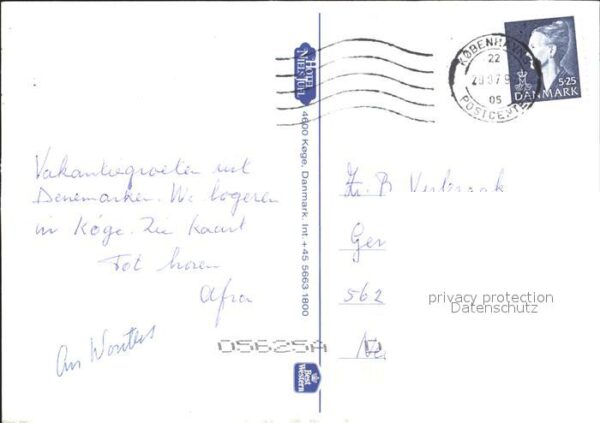 Vakantiegroeten uit
Denemarken. We logeren
in Køge. Zie kaart
Tot horen
Afra
An Wouters
HOTEL
NIELS JUEL
4600 Køge, Danmark. Int. +45 5663 1800
Best
Western
KØBENHAVNS
22
05
POSTCENTER
5.25
DANMARK
B Verbraak
Ger
562
Ne
05625A
privacy protection
Datenschutz